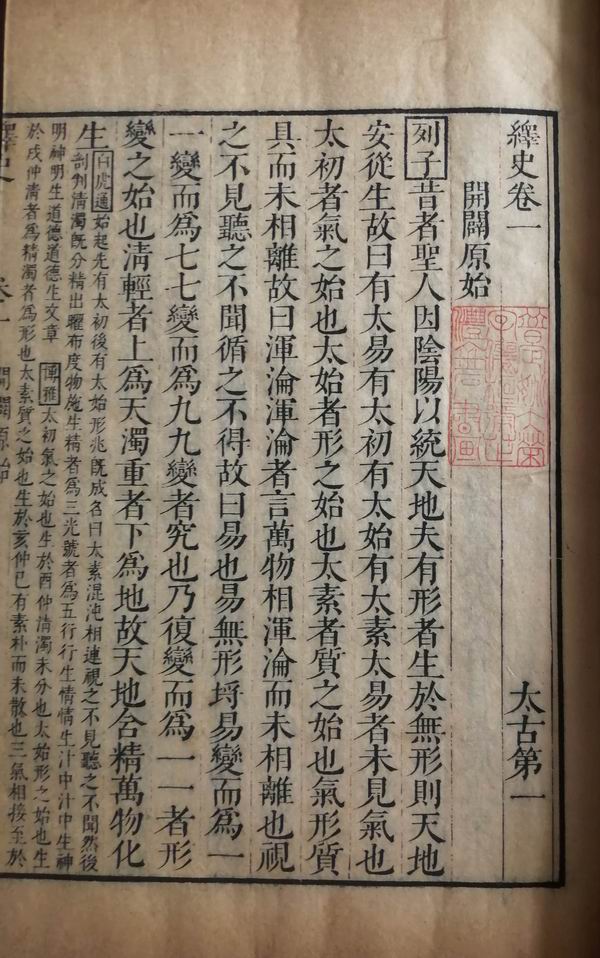 繹史卷一 太古第一
開闢原始
列子昔者聖人因陰陽以統天地夫有形者生於無形則天地
安從生故曰有太易有太初有太始有太素太易者未見氣也
太初者氣之始也太始者形之始也太素者質之始也氣形質
具而未相離故曰渾淪渾淪者言萬物相渾淪而未相離也視
之不見聽之不聞循之不得故曰易也易無形埒易變而爲一
一變而爲七七變而爲九九變者究也乃復變而爲一一者形
變之始也清輕者上爲天濁重者下爲地故天地含精萬物化
生
白虎通始起先有太初後有太始形兆旣成名曰太素混沌相連視之不見聽之不聞然後
剖判清濁旣分精出曜布度物施生精者爲三光號者爲五行行生情情生汁中汁中生神
明神明生道德道德生文章 博雅太初氣之始也生於酉仲清濁未分也太始形之始也生
於戌仲清者爲精濁者爲形也太素質之始也生於亥仲已有素朴而未散也三氣相接至於
繹史 卷一 開闢原始